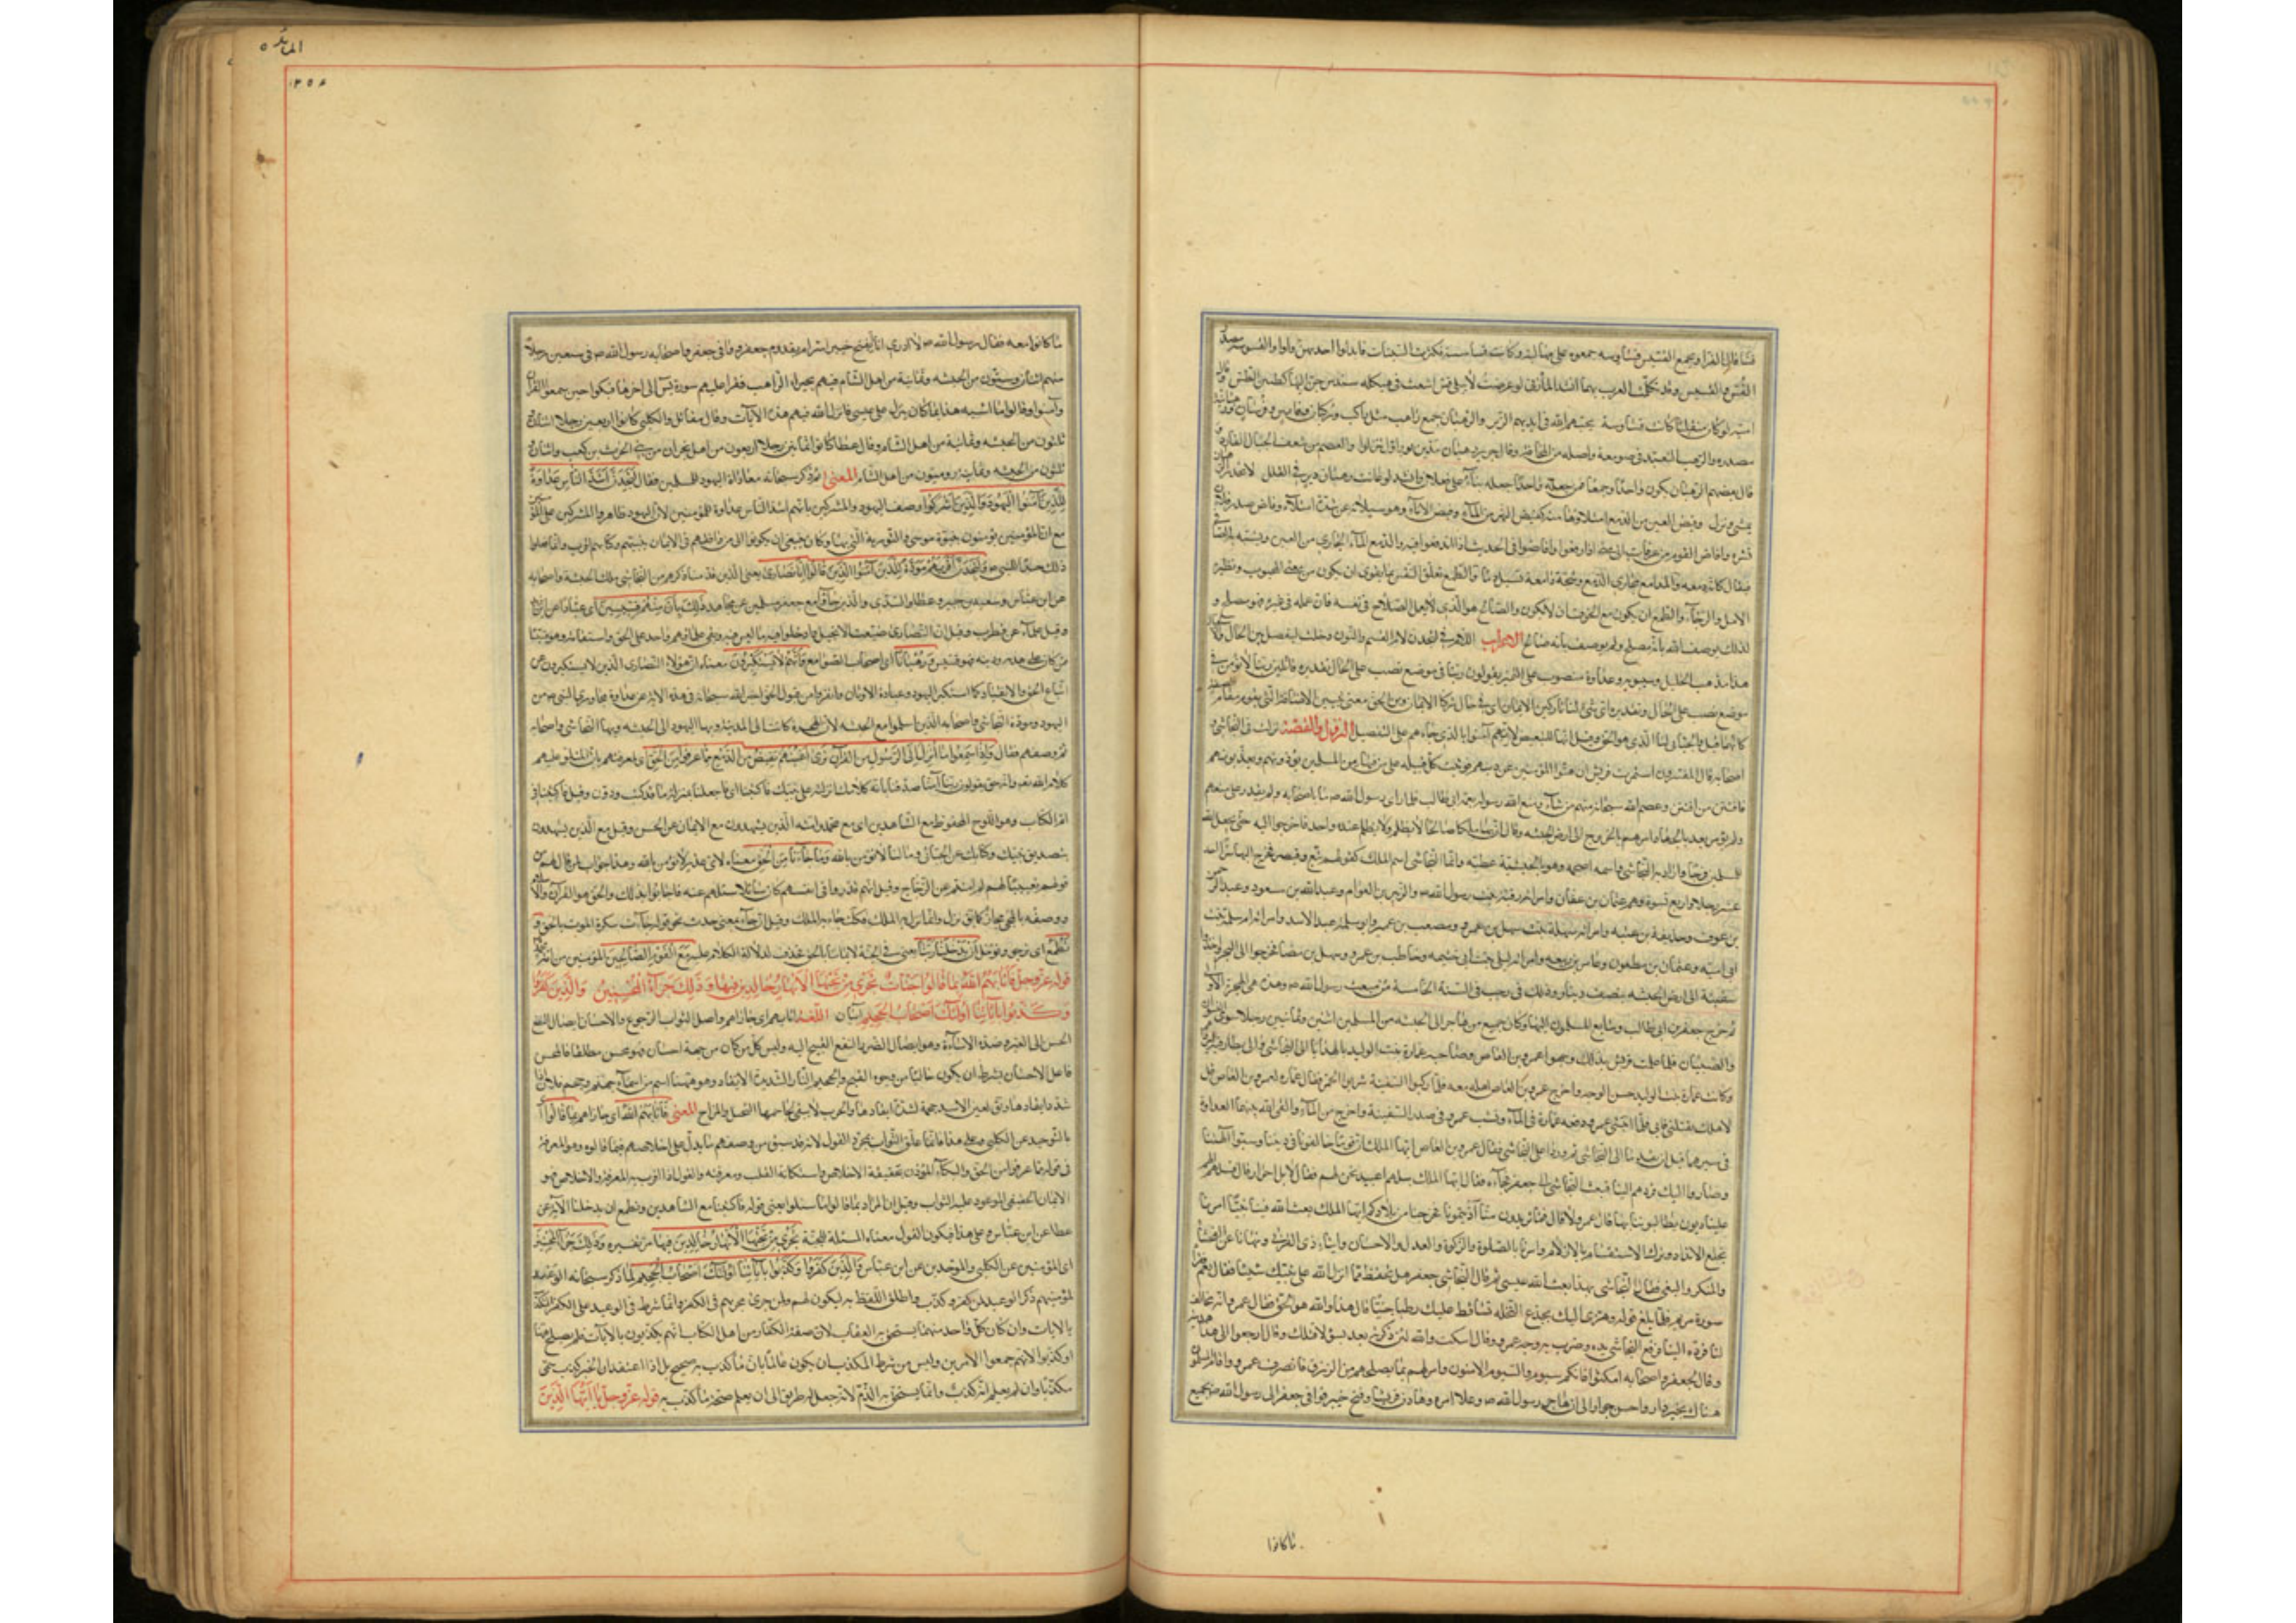 قسا قال الفراء ويجمع القسيس قساوسة جمعوه على مهالبة وكانت قساسسة فكثرت السينات فابدلوا احديهن واوا والقسوسة مصدر
القس والقسيس وقد تكلمت العرب بهما انشد المازنى لو عرضت لأيبلى قس اشعث فى هيكله مندس حن اليها كحنين الطس وقال
امية لو كان منفلت كانت قساوسة يحييهم الله فى ايديهم الزبر والرهبان جمع راهب مثل راكب وركبان وفارس وفرسان والرهبانية
مصدره والترهب التعبد فى صومعة واصله من المخافة وقال جرير رهبان مدين لو راوك تنزلوا والعصم من شعف الجبال الفادر و
قال بعضهم الرهبان يكون واحدا وجمعا فمن جعله واحدا جعله بناء على فعلان وانشد لو عاينت رهبان دير فى القلل لانحدر الرهبان
يمشى ونزل وفيض العين من الدمع امتلاؤها منه كفيض النهر من الماء وفيض الاناء وهو سيلانه عن شدة امتلاء وفاض صدر فلان
بسره وافاض القوم من عرفات الى منى اذا دفعوا وافاضوا فى الحديث اذا تدافعوا فيه والدمع الماء الجارى من العين ويشبه به الصافى
فيقال كانه دمعة والمدامع مجارى الدمع وشجة دامعة تسيل دما والطمع تعلق النفس بما يقوى ان يكون من معنى المحبوب ونظيره
الامل والرجاء والطمع ان يكون مع الخوف ان لا يكون والصالح هو الذى يعمل الصلاح فى نفسه فان عمله فى غيره فهو مصلح و
لذلك يوصف الله بانه مصلح ولم يوصف بانه صالح الاعراب اللام فى لتجدن لام القسم والنون دخلت ليفصل بين الحال والاستقبال
هذا مذهب الخليل وسيبويه وعداوة منصوب على التمييز يقولون ربنا فى موضع نصب على الحال تقديره قائلين ربنا لا نؤمن فى
موضع نصب على الحال وتقديره اى شىء لنا تاركين الايمان اى فى حال تركنا الايمان ومن الحق معنى من
لنا الذى هو الحق وقيل انها للتبعيض لانهم آمنوا بالذى جاءهم على التفصيل النزول والقصة نزلت فى النجاشى و
اصحابه قال المفسرون ائتمرت قريش ان يفتنوا المؤمنين عن دينهم فوثبت كل قبيلة على من فيها من المسلمين يؤذونهم ويعذبونهم
فافتتن من افتتن وعصم الله سبحانه منهم من شاء ومنع الله رسوله بعمه ابى طالب فلما راى رسول الله ص ما باصحابه ولم يقدر على منعهم
ولم يؤمر بعد بالجهاد امرهم بالخروج الى ارض الحبشة وقال ان بها ملكا صالحا لا يظلم ولا يظلم عنده احد فاخرجوا اليه حتى يجعل الله
للمسلمين فرجا واراد به النجاشى واسمه اصحمة وهو بالحبشية عطية وانما النجاشى اسم الملك كقولهم تبع وقيصر فخرج اليها سرا احد
عشر رجلا واربع نسوة وهم عثمان بن عفان وامراته رقية بنت رسول الله ص والزبير بن العوام وعبد الله بن مسعود وعبد الرحمن
بن عوف وحذيفة بن عتبة وامراته سهلة بنت سهيل بن عمرو ومصعب بن عمير وابو سلمة عبد الاسد وامراته ام سلمة بنت
ابى امية وعثمان بن مظعون وعامر بن ربيعة وامراته ليلى بنت ابى خثيمة وحاطب بن عمرو وسهيل بن بيضا فخرجوا الى البحر واخذوا
سفينة الى ارض الحبشة بنصف دينار وذلك فى رجب فى السنة الخامسة من مبعث رسول الله ص وهذه هى الهجرة الاولى
ثم خرج جعفر بن ابى طالب وتتابع المسلمون اليها وكان جميع من هاجر الى الحبشة من المسلمين اثنين وثمانين رجلا سوى النسوان
والصبيان فلما علمت قريش بذلك وجهوا عمرو بن العاص وصاحبه عمارة بنت الوليد بالهدايا الى النجاشى والى بطارقته
وكانت عمارة بنت الوليد حسن الوجه واخرج عمرو بن العاص اهله معه فلما ركبوا السفينة شربوا الخمر فقال عمارة لعمرو بن العاص قل
لاهلك تقبلنى فابى فلما انتشى عمرو دفعه عمارة فى الماء ونشب عمرو فى صدر السفينة واخرج من الماء والقى الله بينهما العداوة
فى مسيرهما قبل ان يقدما الى النجاشى ثم وردا على النجاشى فقال عمرو بن العاص ايها الملك ان قوما خالفونا فى ديننا وسبوا آلهتنا
وصاروا اليك فردهم الينا فبعث النجاشى الى جعفر فجاءه فقال ايها الملك سلهم اعبيد نحن لهم فقال لا بل احرار قال فسلهم الهم
علينا ديون يطالبوننا بها قال عمرو لا قال فما تريدون منا آذيتمونا فخرجنا من بلادكم ايها الملك بعث الله فينا نبيا امرنا
بخلع الانداد وترك الاستقسام بالازلام وامرنا بالصلوة والزكوة والعدل والاحسان وايتاء ذى القربى ونهانا عن الفحشاء
والمنكر والبغى فقال النجاشى بهذا بعث الله عيسى ثم قال النجاشى جعفر هل تحفظ مما انزل الله على نبيك شيئا فقال نعم فقرا
سورة مريم فلما بلغ قوله وهزى اليك بجذع النخلة تساقط عليك رطبا جنيا قال هذا والله هو الحق فقال عمرو انه مخالف
لنا فرده الينا فرفع النجاشى يده وضرب بها وجه عمرو وقال اسكت والله لئن ذكرته بعد بسوء لافعلن وقال ارجعوا الى هذا هديته
وقال لجعفر واصحابه امكثوا فانكم سيوم والسيوم الآمنون وامر لهم بما يصلحهم من الرزق فانصرف عمرو واقام المسلمون
هناك بخير دار واحسن جوار الى ان هاجر رسول الله ص وعلا امره وهادن قريشا وفتح خيبر فوافى جعفر الى رسول الله ص بجميع
ما كانوا
المائدة ٥
ما كانوا معه فقال رسول الله ص لا ادرى انا بفتح خيبر اسر ام بقدوم جعفر ووافى جعفر واصحابه رسول الله ص فى سبعين رجلا
منهم اثنان وستون من الحبشه وثمانية من اهل الشام فيهم بحيراء الراهب فقرا عليهم سورة يس الى اخرها فبكوا حين سمعوا القرآن
وآمنوا وقالوا ما اشبه هذا بما كان ينزل على عيسى فانزل الله فيهم هذه الآيات وقال مقاتل والكلبى كانوا اربعين رجلا اثنان و
ثلثون من الحبشه وثمانية من اهل الشام وقال عطا كانوا ثمانين رجلا اربعون من اهل نجران من بنى الحرث بن كعب واثنان و
ثلثون من الحبشه وثمانية روميون من اهل الشام المعنى ثم ذكر سبحانه معاداة اليهود للمسلمين فقال لتجدن اشد الناس عداوة
للذين آمنوا اليهود والذين اشركوا وصف اليهود والمشركين بانهم اشد الناس عداوة للمؤمنين لان اليهود ظاهروا المشركين على المؤمنين
مع ان المؤمنين يؤمنون بنبوة موسى والتورية التى بها وكان ينبغى ان يكونوا الى من وافقهم فى الايمان بنبيهم وكتابهم اقرب وانما فعلوا
ذلك حسدا للنبى ص ولتجدن اقربهم مودة للذين آمنوا الذين قالوا انا نصارى يعنى الذين قدمنا ذكرهم من النجاشى ملك الحبشة واصحابه
عن ابن عباس وسعيد بن جبير وعطا والسدى والذين جاؤا مع جعفر مسلمين عن مجاهد ذلك بان منهم قسيسين اى عبادا عن ابن زيد
وقيل علماء عن قطرب وقيل ان النصارى ضيعت الانجيل وادخلوا فيه ما ليس منه وبقى من علمائهم واحد على الحق والاستقامة وهو قسيسا
فمن كان على هديه ودينه فهو قسيس ورهبانا اى اصحاب الصوامع وانهم لا يستكبرون معناه ان هؤلاء النصارى الذين لا يستكبرون عن
اتباع الحق والانقياد كما استكبر اليهود وعبادة الاوثان وانفوا من قبول الحق اخبر الله سبحانه فى هذه الآية عن عداوة مجاورى النبى ص من
اليهود ومودة النجاشى واصحابه الذين اسلموا مع الحبشه لان الهجرة كانت الى المدينة وبها اليهود الى الحبشه وبها النجاشى واصحابه
ثم وصفهم فقال واذا سمعوا ما انزل الى الرسول من القرآن ترى اعينهم تفيض من الدمع مما عرفوا من الحق اى لمعرفتهم بان المتلو عليهم
كلام الله تعه وانه حق يقولون ربنا آمنا صدقنا بانه كلامك انزلته على نبيك فاكتبنا اى فاجعلنا بمنزلة من قد كتب ودون وقيل فاكتبنا فى
ام الكتاب وهو اللوح المحفوظ مع الشاهدين اى مع محمد وامته الذين يشهدون مع الايمان عن الحسن وقيل مع الذين يشهدون
بتصديق نبيك وكتابك عن الجبائى وما لنا لا نؤمن بالله وما جاءنا من الحق معناه لاى عذر لا نؤمن بالله وهذا جواب لمن قال لهم من
قومهم تعنيفا لهم لم امنتم عن الزجاج وقيل انهم قدروا فى انفسهم كان سائلا سئلهم عنه فاجابوا بذلك والحق هو القرآن والاسلام
ووصفه بالمجىء مجازا كما يق نزل وانما نزل به الملك فكانه جاء به الملك وقيل ان جاء بمعنى حدث نحو قوله جاءت سكرة الموت بالحق و
نطمع اى نرجو ونؤمل ان يدخلنا ربنا يعنى فى الجنة لايماننا بالحق فحذف لدلالة الكلام عليه مع القوم الصالحين المؤمنين من امة محمد
قوله عز وجل فاثابهم الله بما قالوا جنات تجرى من تحتها الانهار خالدين فيها وذلك جزاء المحسنين والذين كفروا
وكذبوا بآياتنا اولئك اصحاب الجحيم آيتان اللغة اثابهم اى جازاهم واصل الثواب الرجوع والاحسان ايصال النفع
الحسن الى الغير وضده الاساءة وهو ايصال الضرر القبيح اليه وليس كل من كان من جهته احسان فهو محسن مطلقا فالمحسن
فاعل الاحسان بشرط ان يكون خاليا من وجوه القبح والجحيم النار الشديدة الايقاد وهو هيهنا اسم من اسماء جهنم وجحم فلان النار اذا
شدد ايقادها ويق لعين الاسد جحمة لشدة ايقادها والحرب لا يبقى لجاحمها التخيل والمراح المعنى فاثابهم الله اى جازاهم بما قالوا اى
بالتوحيد عن الكلبى وعلى هذا فانما علق الثواب بمجرد القول لانه قد سبق من وصفهم ما يدل على اخلاصهم فيما قالوه وهو المعرفة
فى قوله مما عرفوا من الحق والبكاء المؤذن بحقيقة الاخلاص واستكانة القلب ومعرفته والقول اذا اقترن به المعرفة والاخلاص فهو
الايمان الحقيقى الموعود عليه الثواب وقيل ان المراد بما قالوا ما سئلوا يعنى قوله فاكتبنا مع الشاهدين ونطمع ان يدخلنا الآية عن
عطا عن ابن عباس وعلى هذا فيكون القول معناه المسئلة للجنة تجرى من تحتها الانهار خالدين فيها مر تفسيره وذلك جزاء المحسنين
اى المؤمنين عن الكلبى والموحدين عن ابن عباس والذين كفروا وكذبوا بآياتنا اولئك اصحاب الجحيم لما ذكر سبحانه الوعد
لمؤمنيهم ذكر الوعيد لمن كفر وكذب واطلق اللفظ به ليكون لهم ولمن جرى مجريهم فى الكفر وانما شرط فى الوعيد على الكفر التكذيب
بالايات وان كان كل واحد منهما يستحق به العقاب لان صفة الكفار من اهل الكتاب انهم يكذبون بالآيات فلم يصلح هيهنا
او كذبوا لانهم جمعوا الامرين وليس من شرط المكذب ان يكون عالما بان ما كذب به صحيح بل اذا اعتقد ان الخبر كذب سمى
مكذبا وان لم يعلم انه كذب وانما يستحق به الذم لانه جعل له طريق الى ان يعلم صحة ما كذب به قوله عز وجل يا ايها الذين